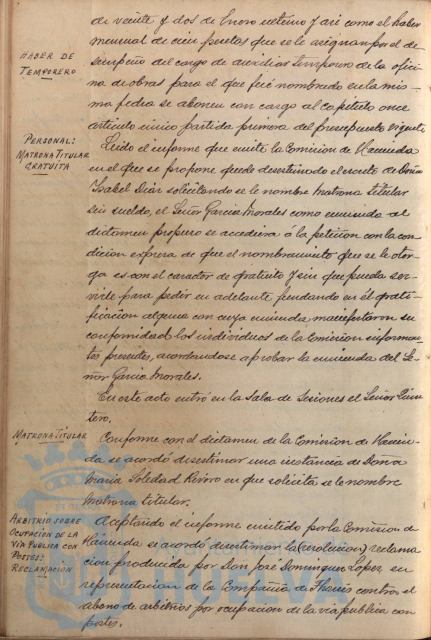 de veinte y dos de Enero ultimo y asi como el haber
mensual de cien pesetas que se le asignan por el de-
sempeño del cargo de auxiliar temporero de la ofici-
na de obras para el que fué nombrado en la mis-
ma fecha se abonen con cargo al capitulo once
articulo unico partida primera del presupuesto vigente
HABER DE
TEMPORERO
Leido el informe que emite la Comision de Hacienda
en el que se propone quede desestimado el escrito de Doña
Isabel Diaz solicitando se le nombre Matrona titular
sin sueldo, el Señor Garcia Morales como enmienda al
dictamen propuso se accediera á la peticion con la con-
dicion expresa de que el nombramiento que se le otor-
ga es con el caracter de gratuito y sin que pueda ser-
virle para pedir en adelante fundando en él grati-
ficacion alguna con cuya enmienda manifestaron su
conformidad los individuos de la Comision informan-
tes presentes, acordandose aprobar la enmienda del Se-
ñor Garcia Morales.
PERSONAL:
MATRONA TITULAR
GRATUITA
En este acto entró en la Sala de Sesiones el Señor Quin-
tero.
Conforme con el dictamen de la Comision de Hacien-
da se acordó desestimar una instancia de Doña
Maria Soledad Rivero en que solicita se le nombre
Matrona titular.
MATRONA TITULAR
Aceptando el informe emitido por la Comision de
Hacienda se acordó desestimar la (resolucion) reclama
cion producida por Don José Dominguez Lopez en
representacion de la Compañia de Tharsis contra el
abono de arbitrios por ocupacion de la via publica con
postes.
ARBITRIO SOBRE
OCUPACIÓN DE LA
VÍA PUBLICA CON
POSTES:
RECLAMACIÓN